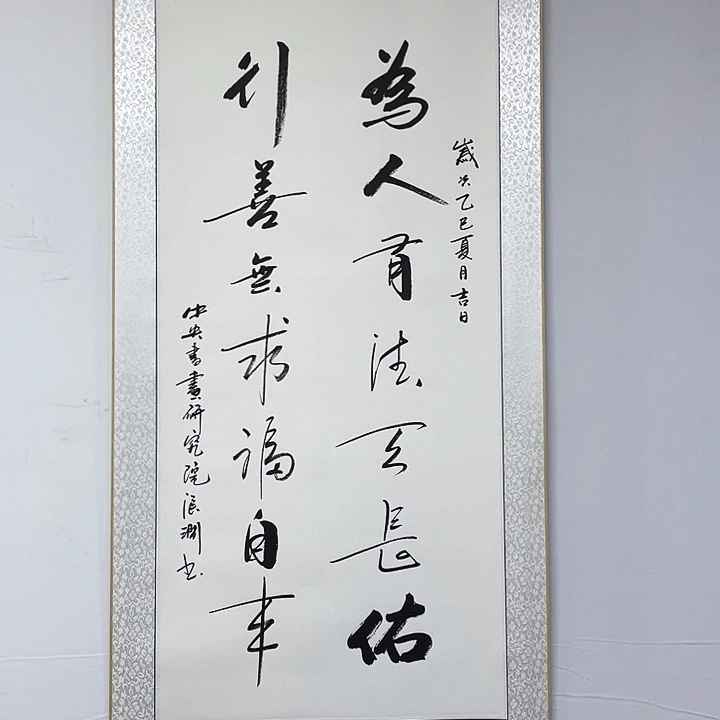 歲次乙巳夏月吉日
為人有德天長佑
行善無求福自来
中央書畫研究院书